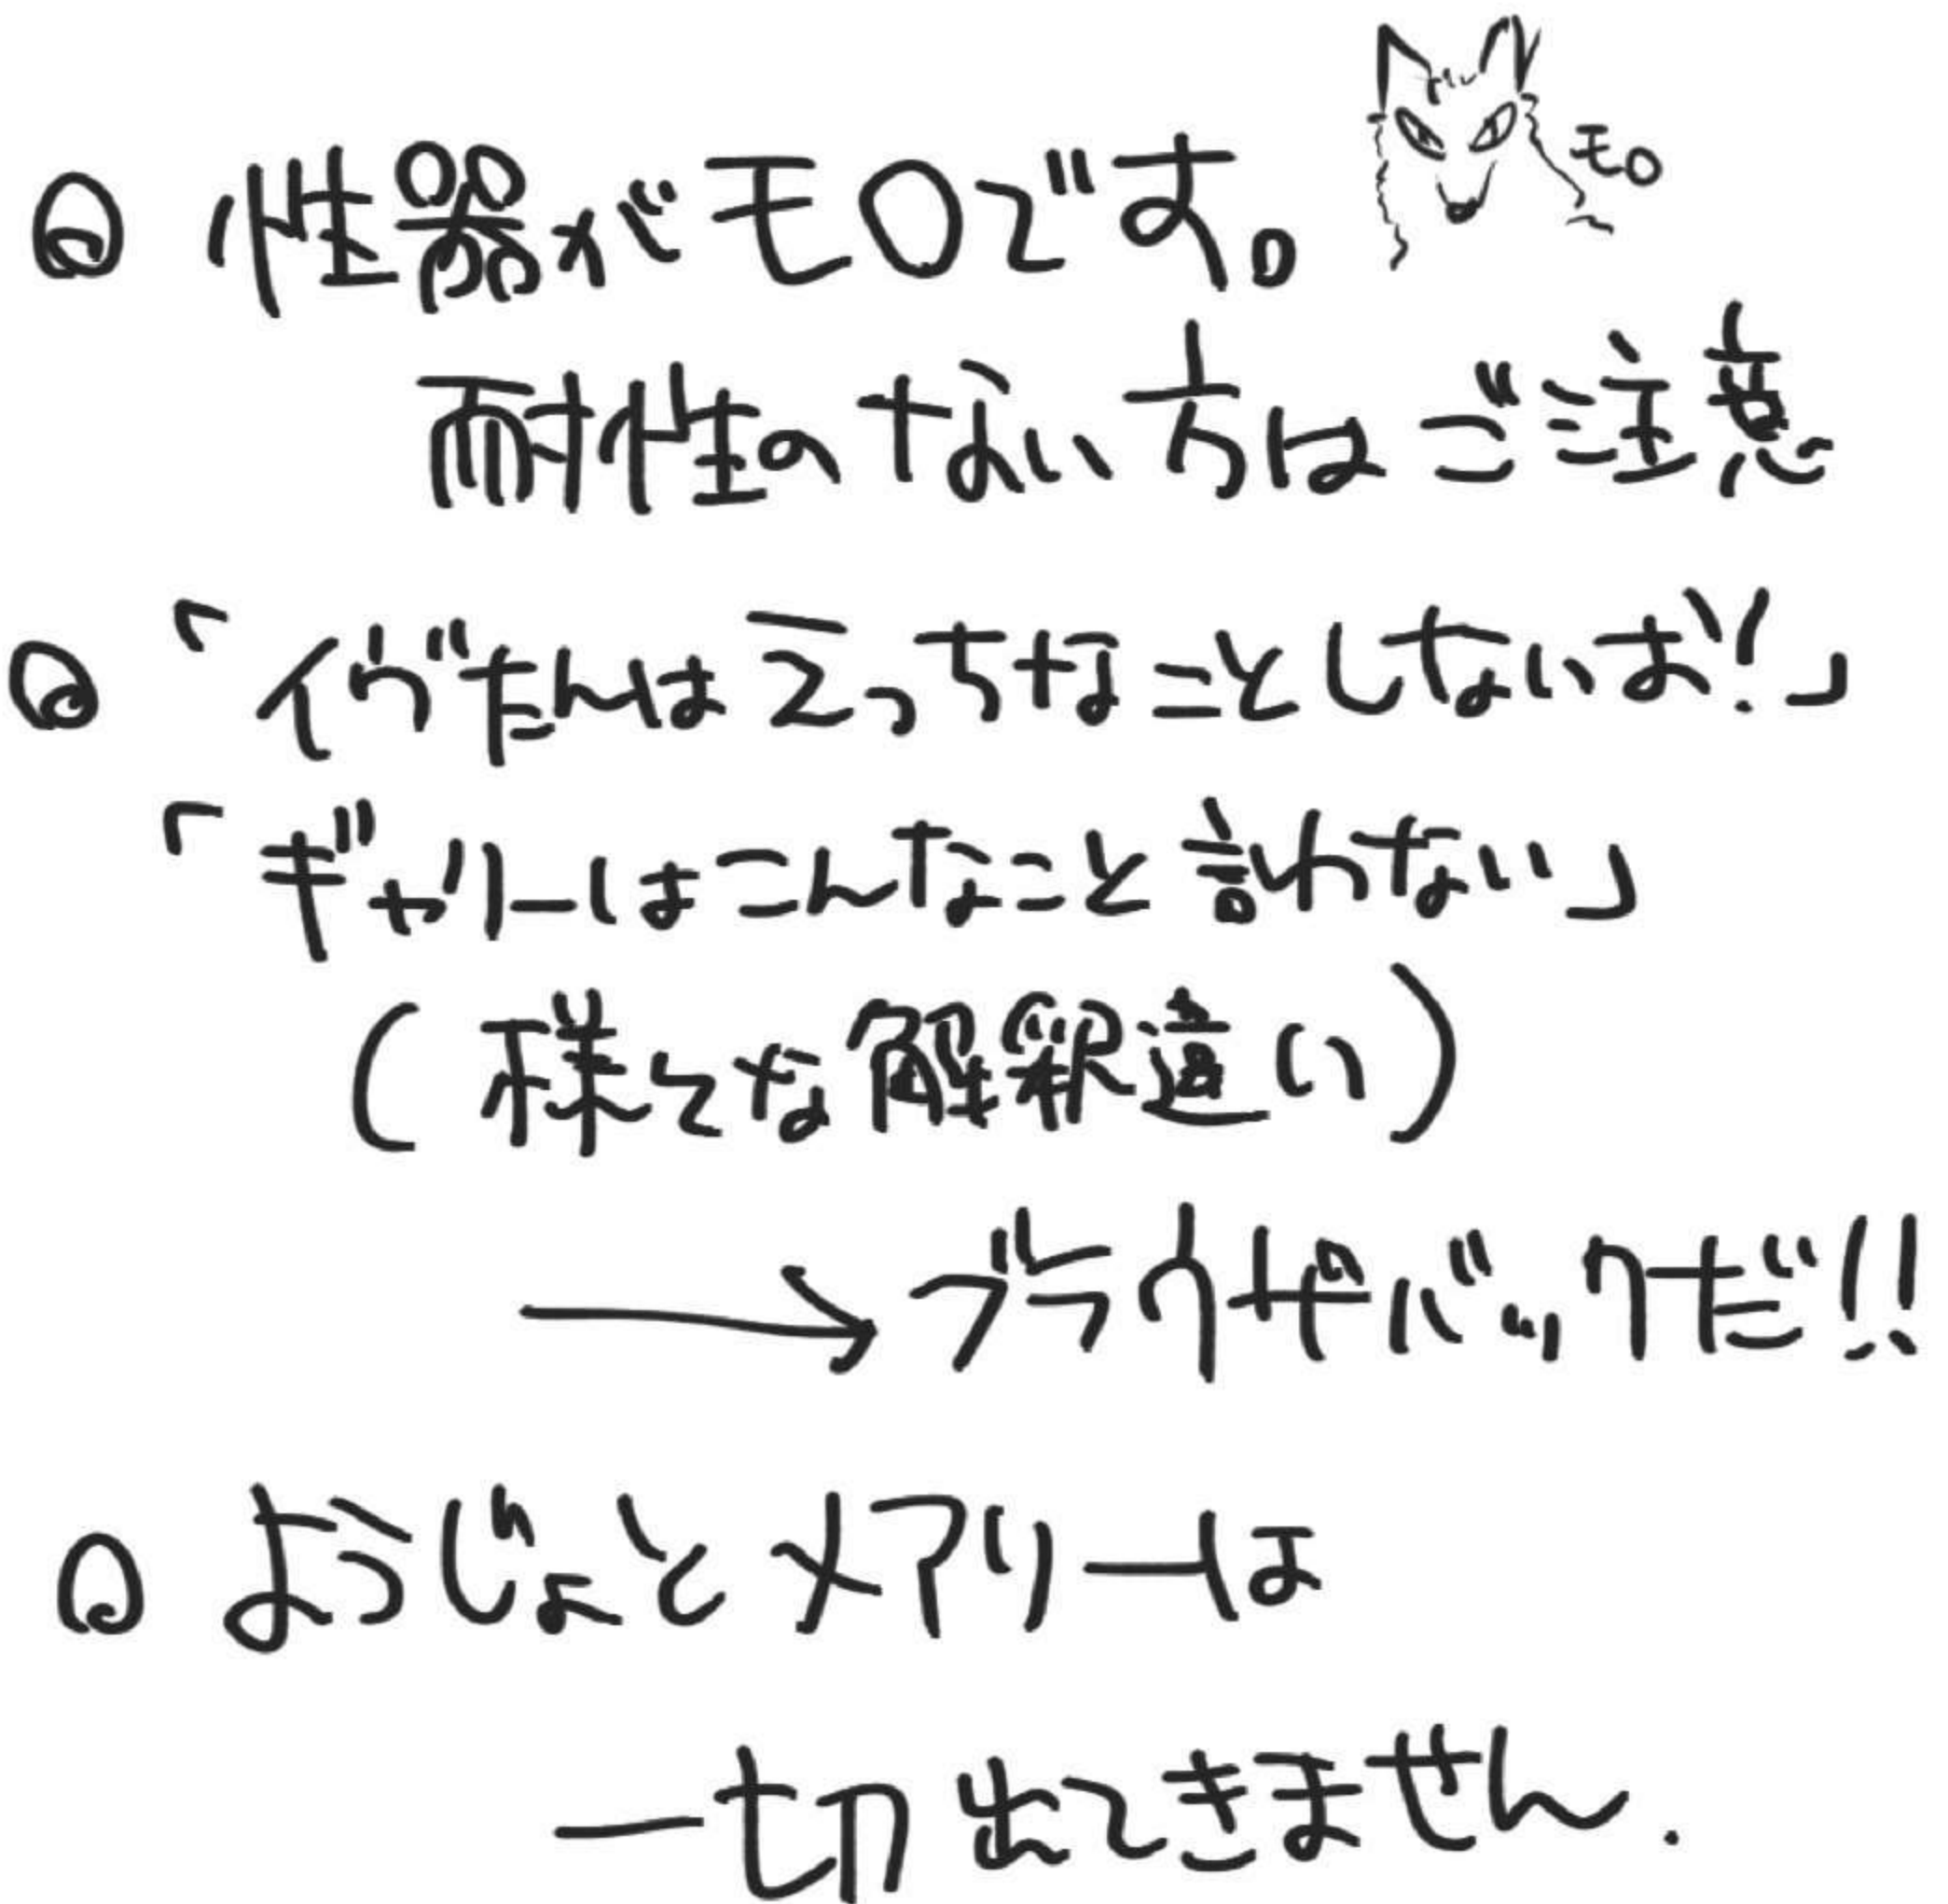 性器がモロです。
モロ
耐性のない方はご注意
「イヴたんはえっちなことしないお!」
「ギャリーはこんなこと言わない」
(様々な解釈違い)
→ブラウザバックだ!!
ようじょとメアリーは
一切出てきません.